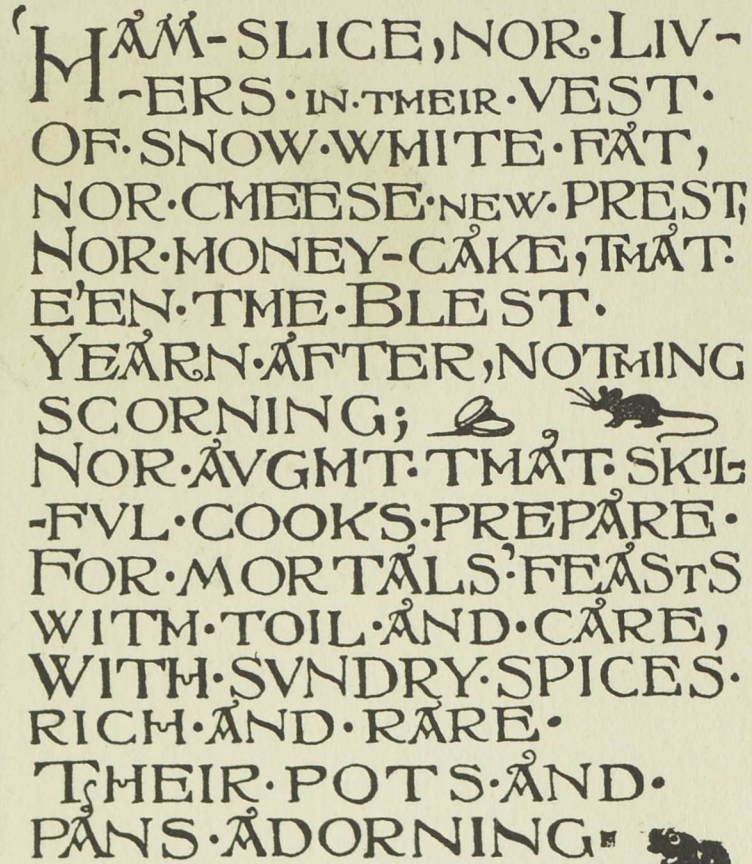 ‘HAM-SLICE, NOR·LIV-
-ERS·IN·THEIR·VEST·
OF·SNOW·WHITE·FAT,
NOR·CHEESE·NEW·PREST;
NOR·HONEY-CAKE, THAT·
E'EN·THE·BLEST·
YEARN·AFTER, NOTHING
SCORNING;
NOR·AVGHT·THAT·SKIL-
-FVL·COOKS·PREPARE·
FOR·MORTALS'·FEASTS
WITH·TOIL·AND·CARE,
WITH·SVNDRY·SPICES·
RICH·AND·RARE·
THEIR·POTS·AND·
PANS·ADORNING·